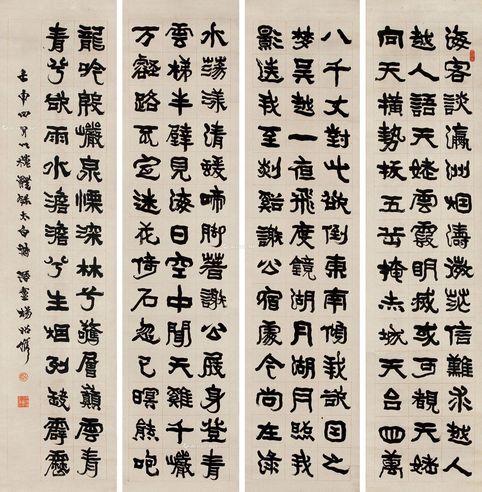 海客談瀛洲烟濤微茫信難求越人
越人語天姥雲霞明滅或可覩天姥
向天橫勢拔五岳掩赤城天台四萬
八千丈對此欲倒東南傾我欲因之
梦吳越一夜飛度鏡湖月湖月照我
影送我至剡谿謝公宿處今尚在淥
水蕩漾清猨啼脚著謝公屐身登青
雲梯半壁見海日空中聞天雞千巖
万壑路不定迷花倚石忽已暝熊咆
龍吟殷巖泉慄深林兮驚層巔雲青
青兮欲雨水澹澹兮生烟列缺霹靂
壬申四月以漢隸録太白詩 楊昭儁